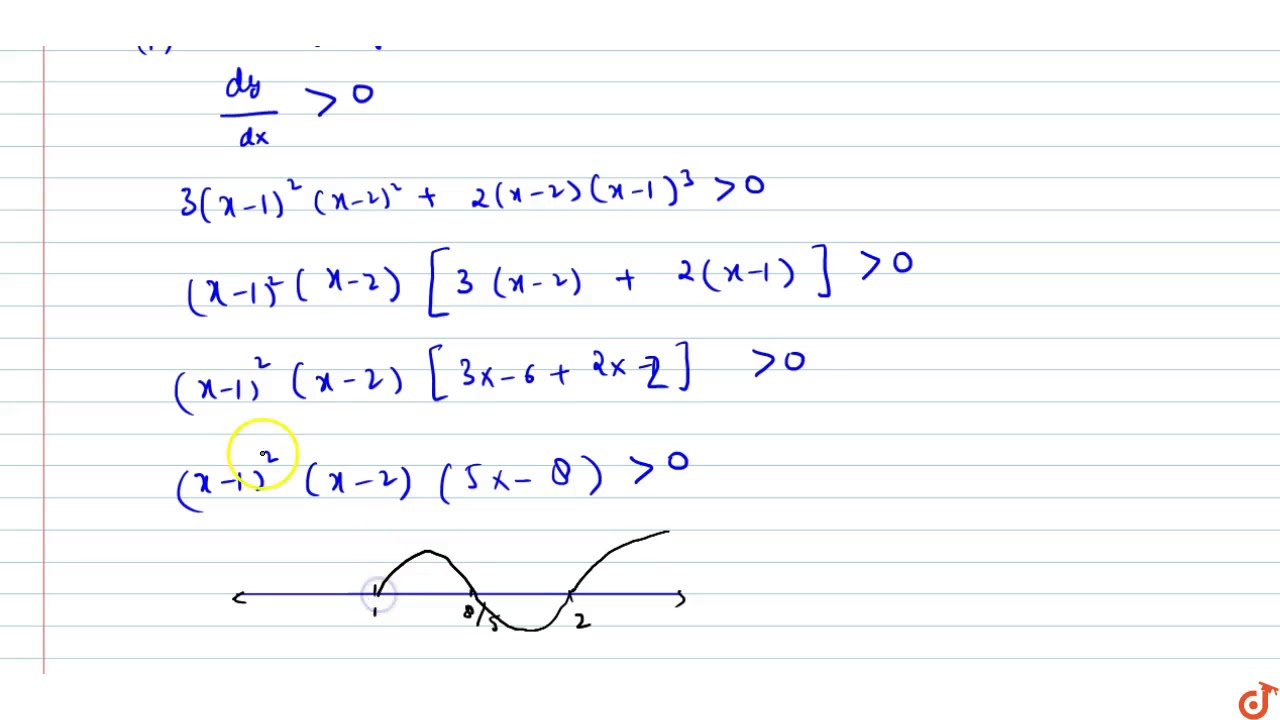 dy/dx > 0
3(x-1)² (x-2)² + 2(x-2)(x-1)³ > 0
(x-1)² (x-2) [3(x-2) + 2(x-1)] > 0
(x-1)² (x-2) [3x-6 + 2x-2] > 0
(x-1)² (x-2) (5x-8) > 0
1 8/5 2